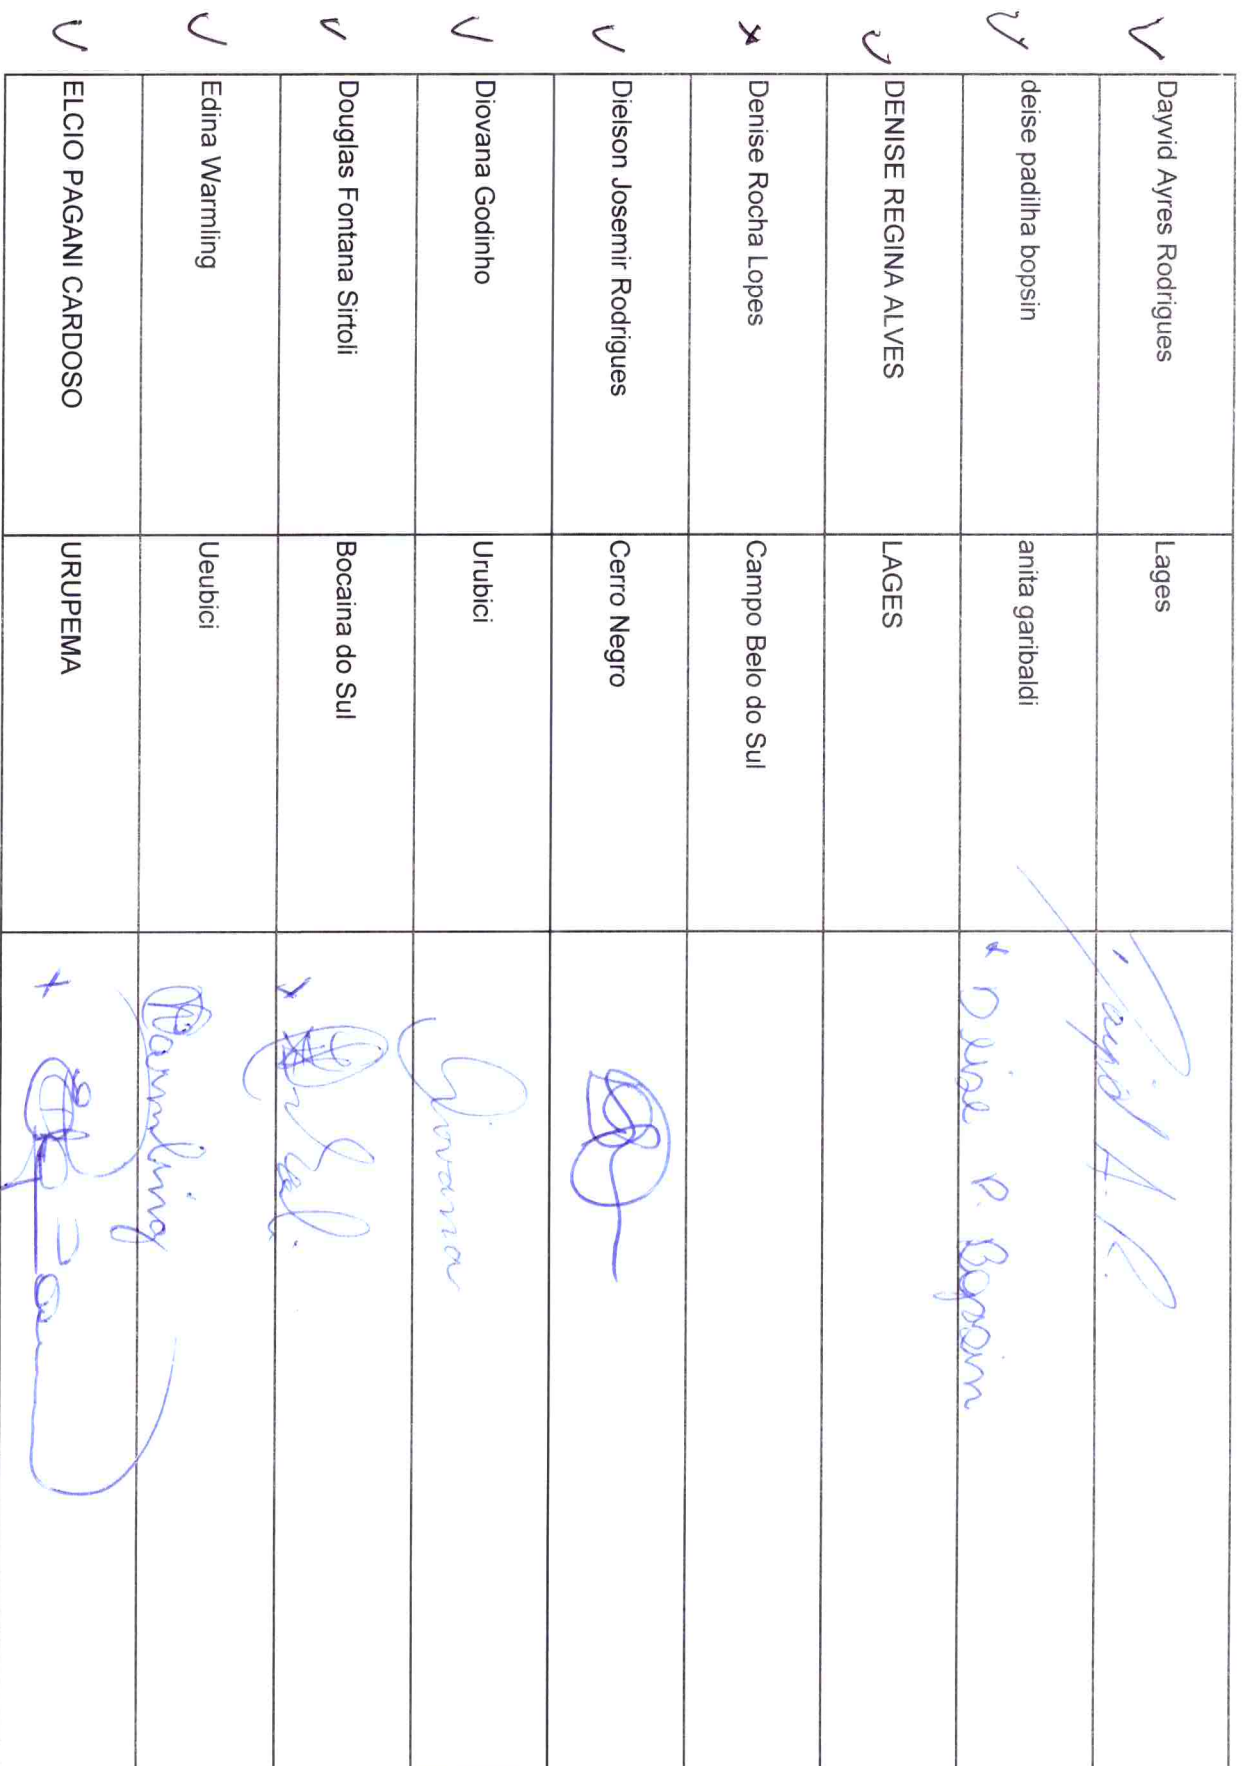 Dayvid Ayres Rodrigues Lages Dayvid A. R.
deise padilha bopsin anita garibaldi Deise P. Bopsin
DENISE REGINA ALVES LAGES
Denise Rocha Lopes Campo Belo do Sul
Dielson Josemir Rodrigues Cerro Negro
Diovana Godinho Urubici Diovana
Douglas Fontana Sirtoli Bocaina do Sul
Edina Warmling Ueubici Warmling
ELCIO PAGANI CARDOSO URUPEMA